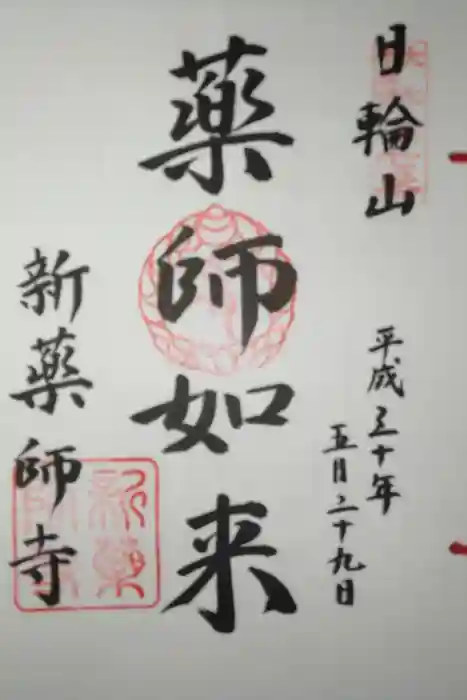 日輪山
平成三十年
五月二十九日
薬師如来
新薬師寺